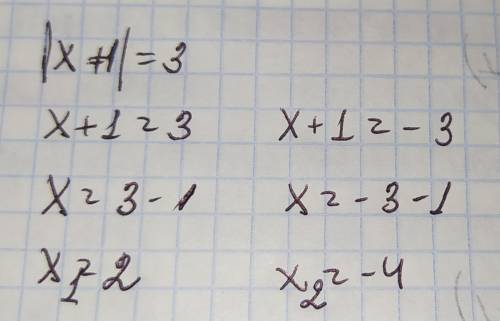 |x+1| = 3
x+1=3 x+1=-3
x=3-1 x=-3-1
x₁=2 x₂=-4